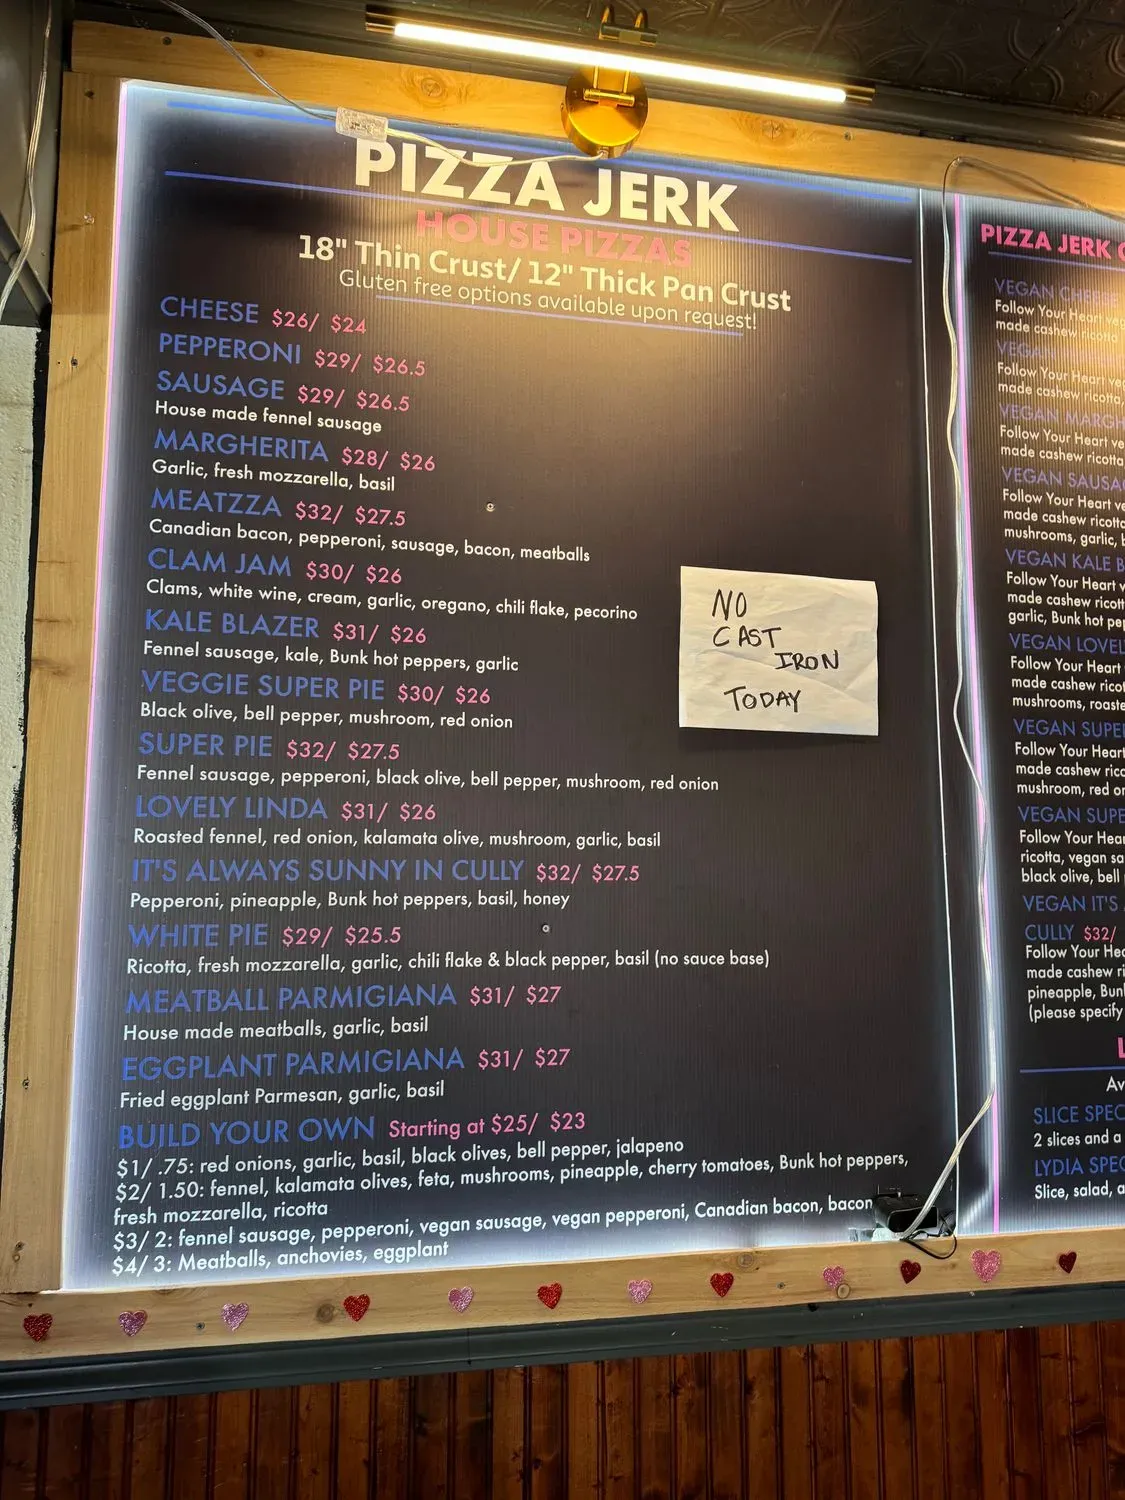 PIZZA JERK
HOUSE PIZZAS
18" Thin Crust/ 12" Thick Pan Crust
Gluten free options available upon request!
CHEESE $26/ $24
PEPPERONI $29/ $26.5
SAUSAGE $29/ $26.5
House made fennel sausage
MARGHERITA $28/ $26
Garlic, fresh mozzarella, basil
MEATZZA $32/ $27.5
Canadian bacon, pepperoni, sausage, bacon, meatballs
CLAM JAM $30/ $26
Clams, white wine, cream, garlic, oregano, chili flake, pecorino
KALE BLAZER $31/ $26
Fennel sausage, kale, Bunk hot peppers, garlic
VEGGIE SUPER PIE $30/ $26
Black olive, bell pepper, mushroom, red onion
SUPER PIE $32/ $27.5
Fennel sausage, pepperoni, black olive, bell pepper, mushroom, red onion
LOVELY LINDA $31/ $26
Roasted fennel, red onion, kalamata olive, mushroom, garlic, basil
IT'S ALWAYS SUNNY IN CULLY $32/ $27.5
Pepperoni, pineapple, Bunk hot peppers, basil, honey
WHITE PIE $29/ $25.5
Ricotta, fresh mozzarella, garlic, chili flake & black pepper, basil (no sauce base)
MEATBALL PARMIGIANA $31/ $27
House made meatballs, garlic, basil
EGGPLANT PARMIGIANA $31/ $27
Fried eggplant Parmesan, garlic, basil
BUILD YOUR OWN Starting at $25/ $23
$1/ .75: red onions, garlic, basil, black olives, bell pepper, jalapeno
$2/ 1.50: fennel, kalamata olives, feta, mushrooms, pineapple, cherry tomatoes, Bunk hot peppers,
fresh mozzarella, ricotta
$3/ 2: fennel sausage, pepperoni, vegan sausage, vegan pepperoni, Canadian bacon, bacon
$4/ 3: Meatballs, anchovies, eggplant
NO
CAST
IRON
TODAY
PIZZA JERK
VEGAN CHEESE
Follow Your Heart
made cashew ricotta
VEGAN
Follow Your Heart
made cashew ricotta,
VEGAN
Follow Your Heart
made cashew ricotta
VEGAN
Follow Your Heart
made cashew
mushrooms, garlic,
VEGAN KALE
Follow Your Heart
made cashew
garlic, Bunk hot
VEGAN
Follow Your Heart
made cashew
mushrooms,
VEGAN
Follow Your Heart
made cashew
mushroom, red
VEGAN
Follow Your
ricotta, vegan
black olive, bell
VEGAN IT'S
CULLY $32/
Follow Your
made cashew
pineapple,
(please specify
SLICE
2 slices and a
LYDIA
Slice, salad,